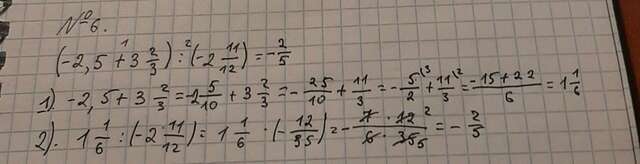 №6.
(-2,5 + 3 2/3) : (-2 11/12) = -2/5
1) -2,5 + 3 2/3 = -2 5/10 + 3 2/3 = -25/10 + 11/3 = -5/2 + 11/3 = (-15+22)/6 = 1 1/6
2). 1 1/6 : (-2 11/12) = 1 1/6 · (-12/35) = -(7 · 12 2)/(6 · 35 5) = -2/5